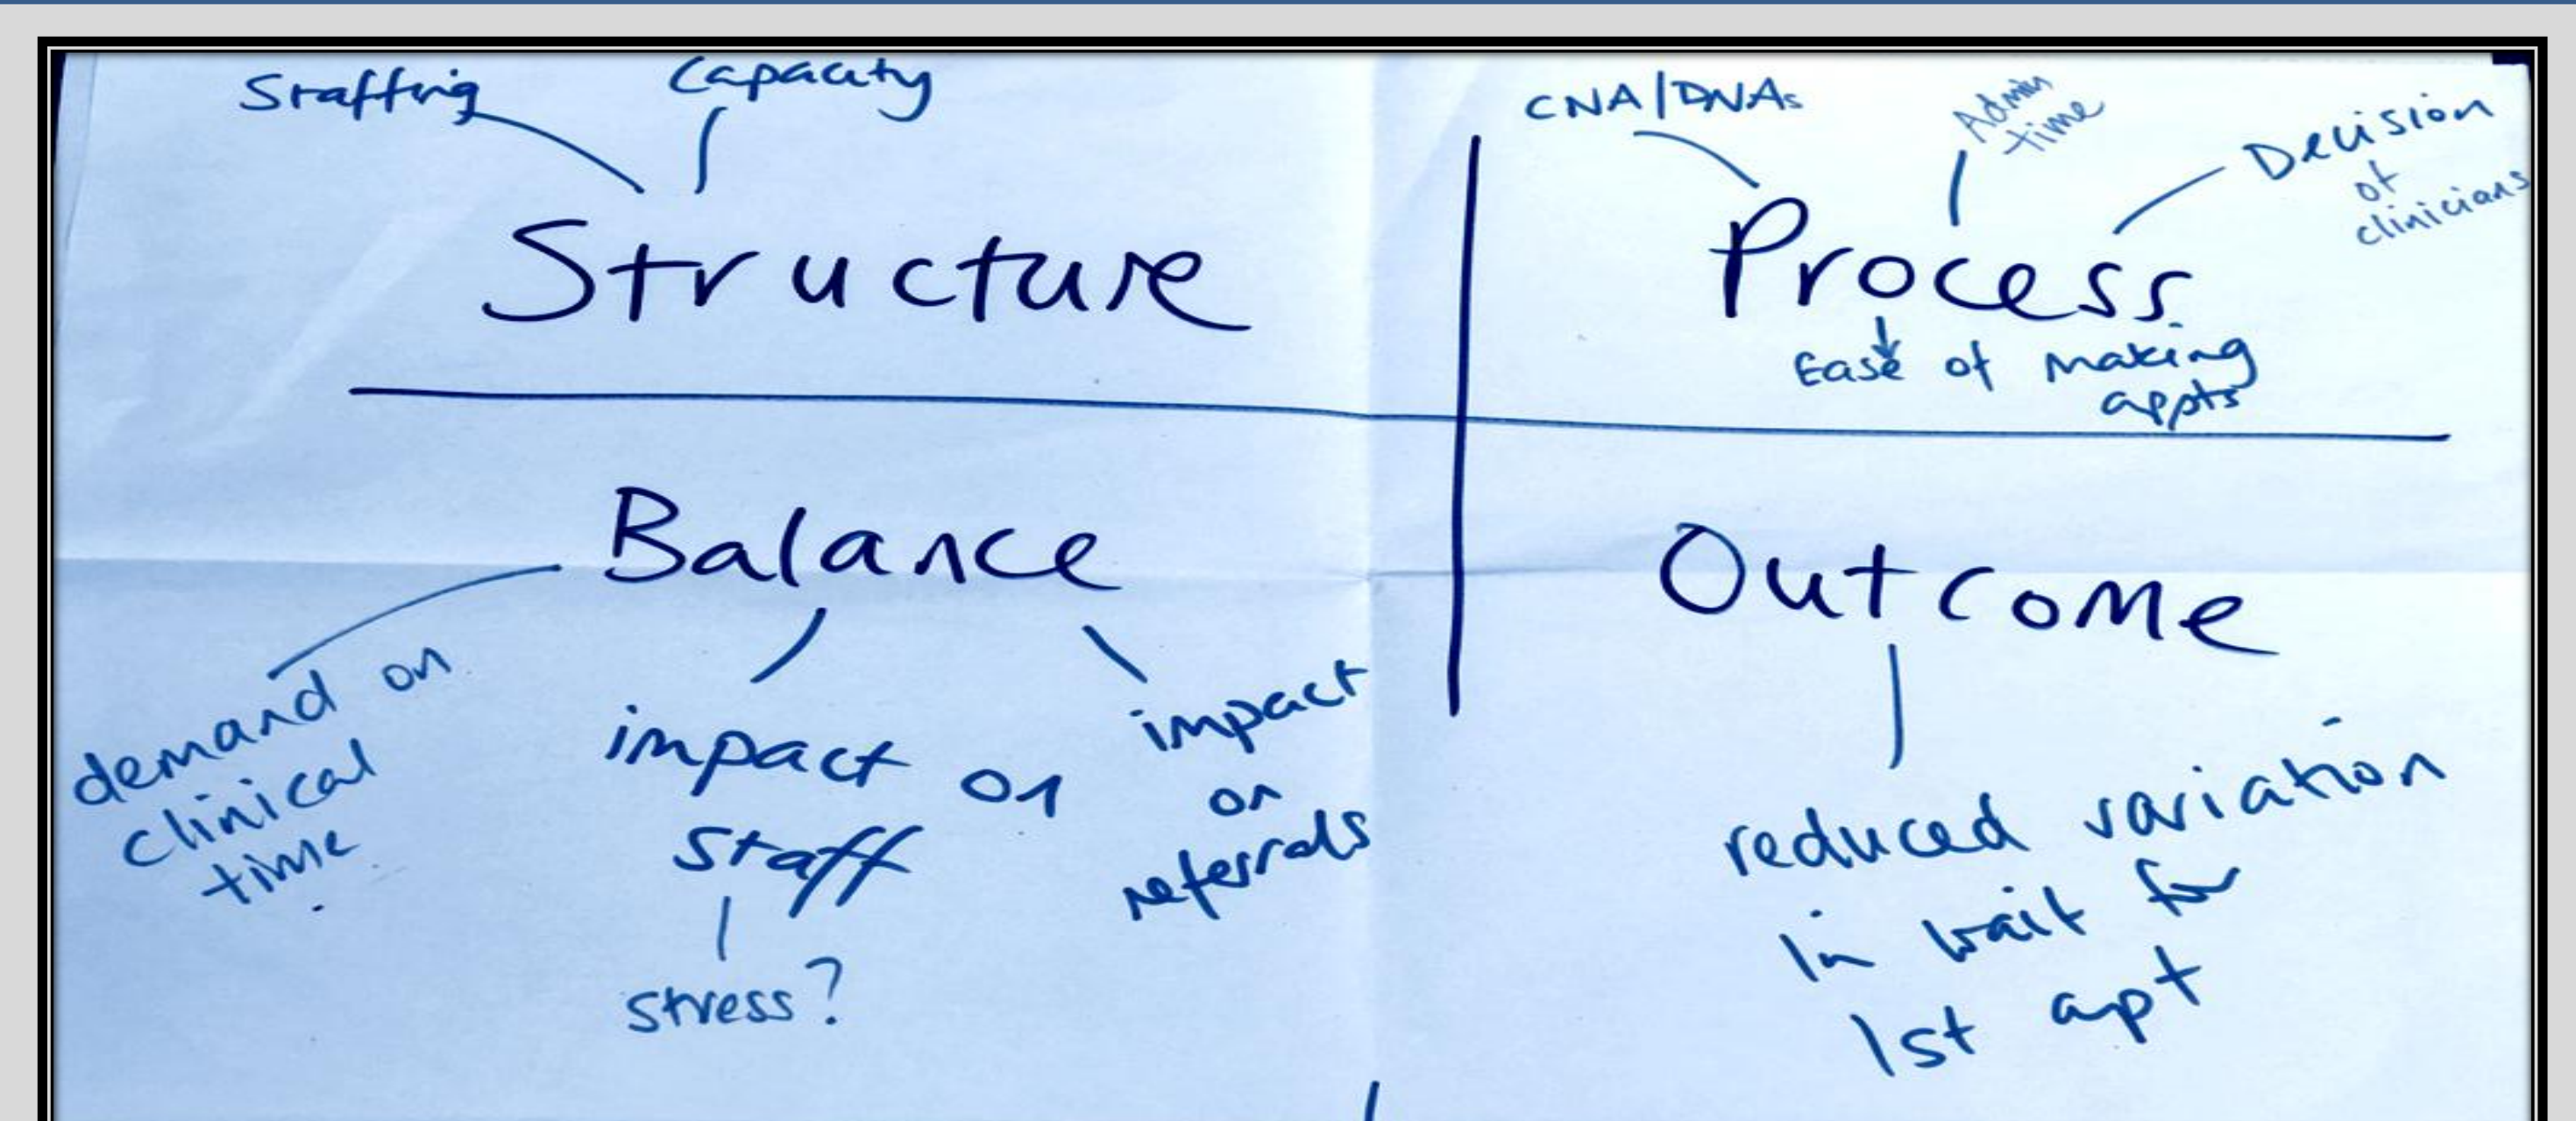 Staffing
Capacity
Structure
CNA/DNAs
Admin
time
Decision
of
clinicians
Process
Ease of making
appts
Balance
demand on
clinical
time
impact on
staff
stress?
impact
on
referrals
Outcome
reduced variation
in wait for
1st apt